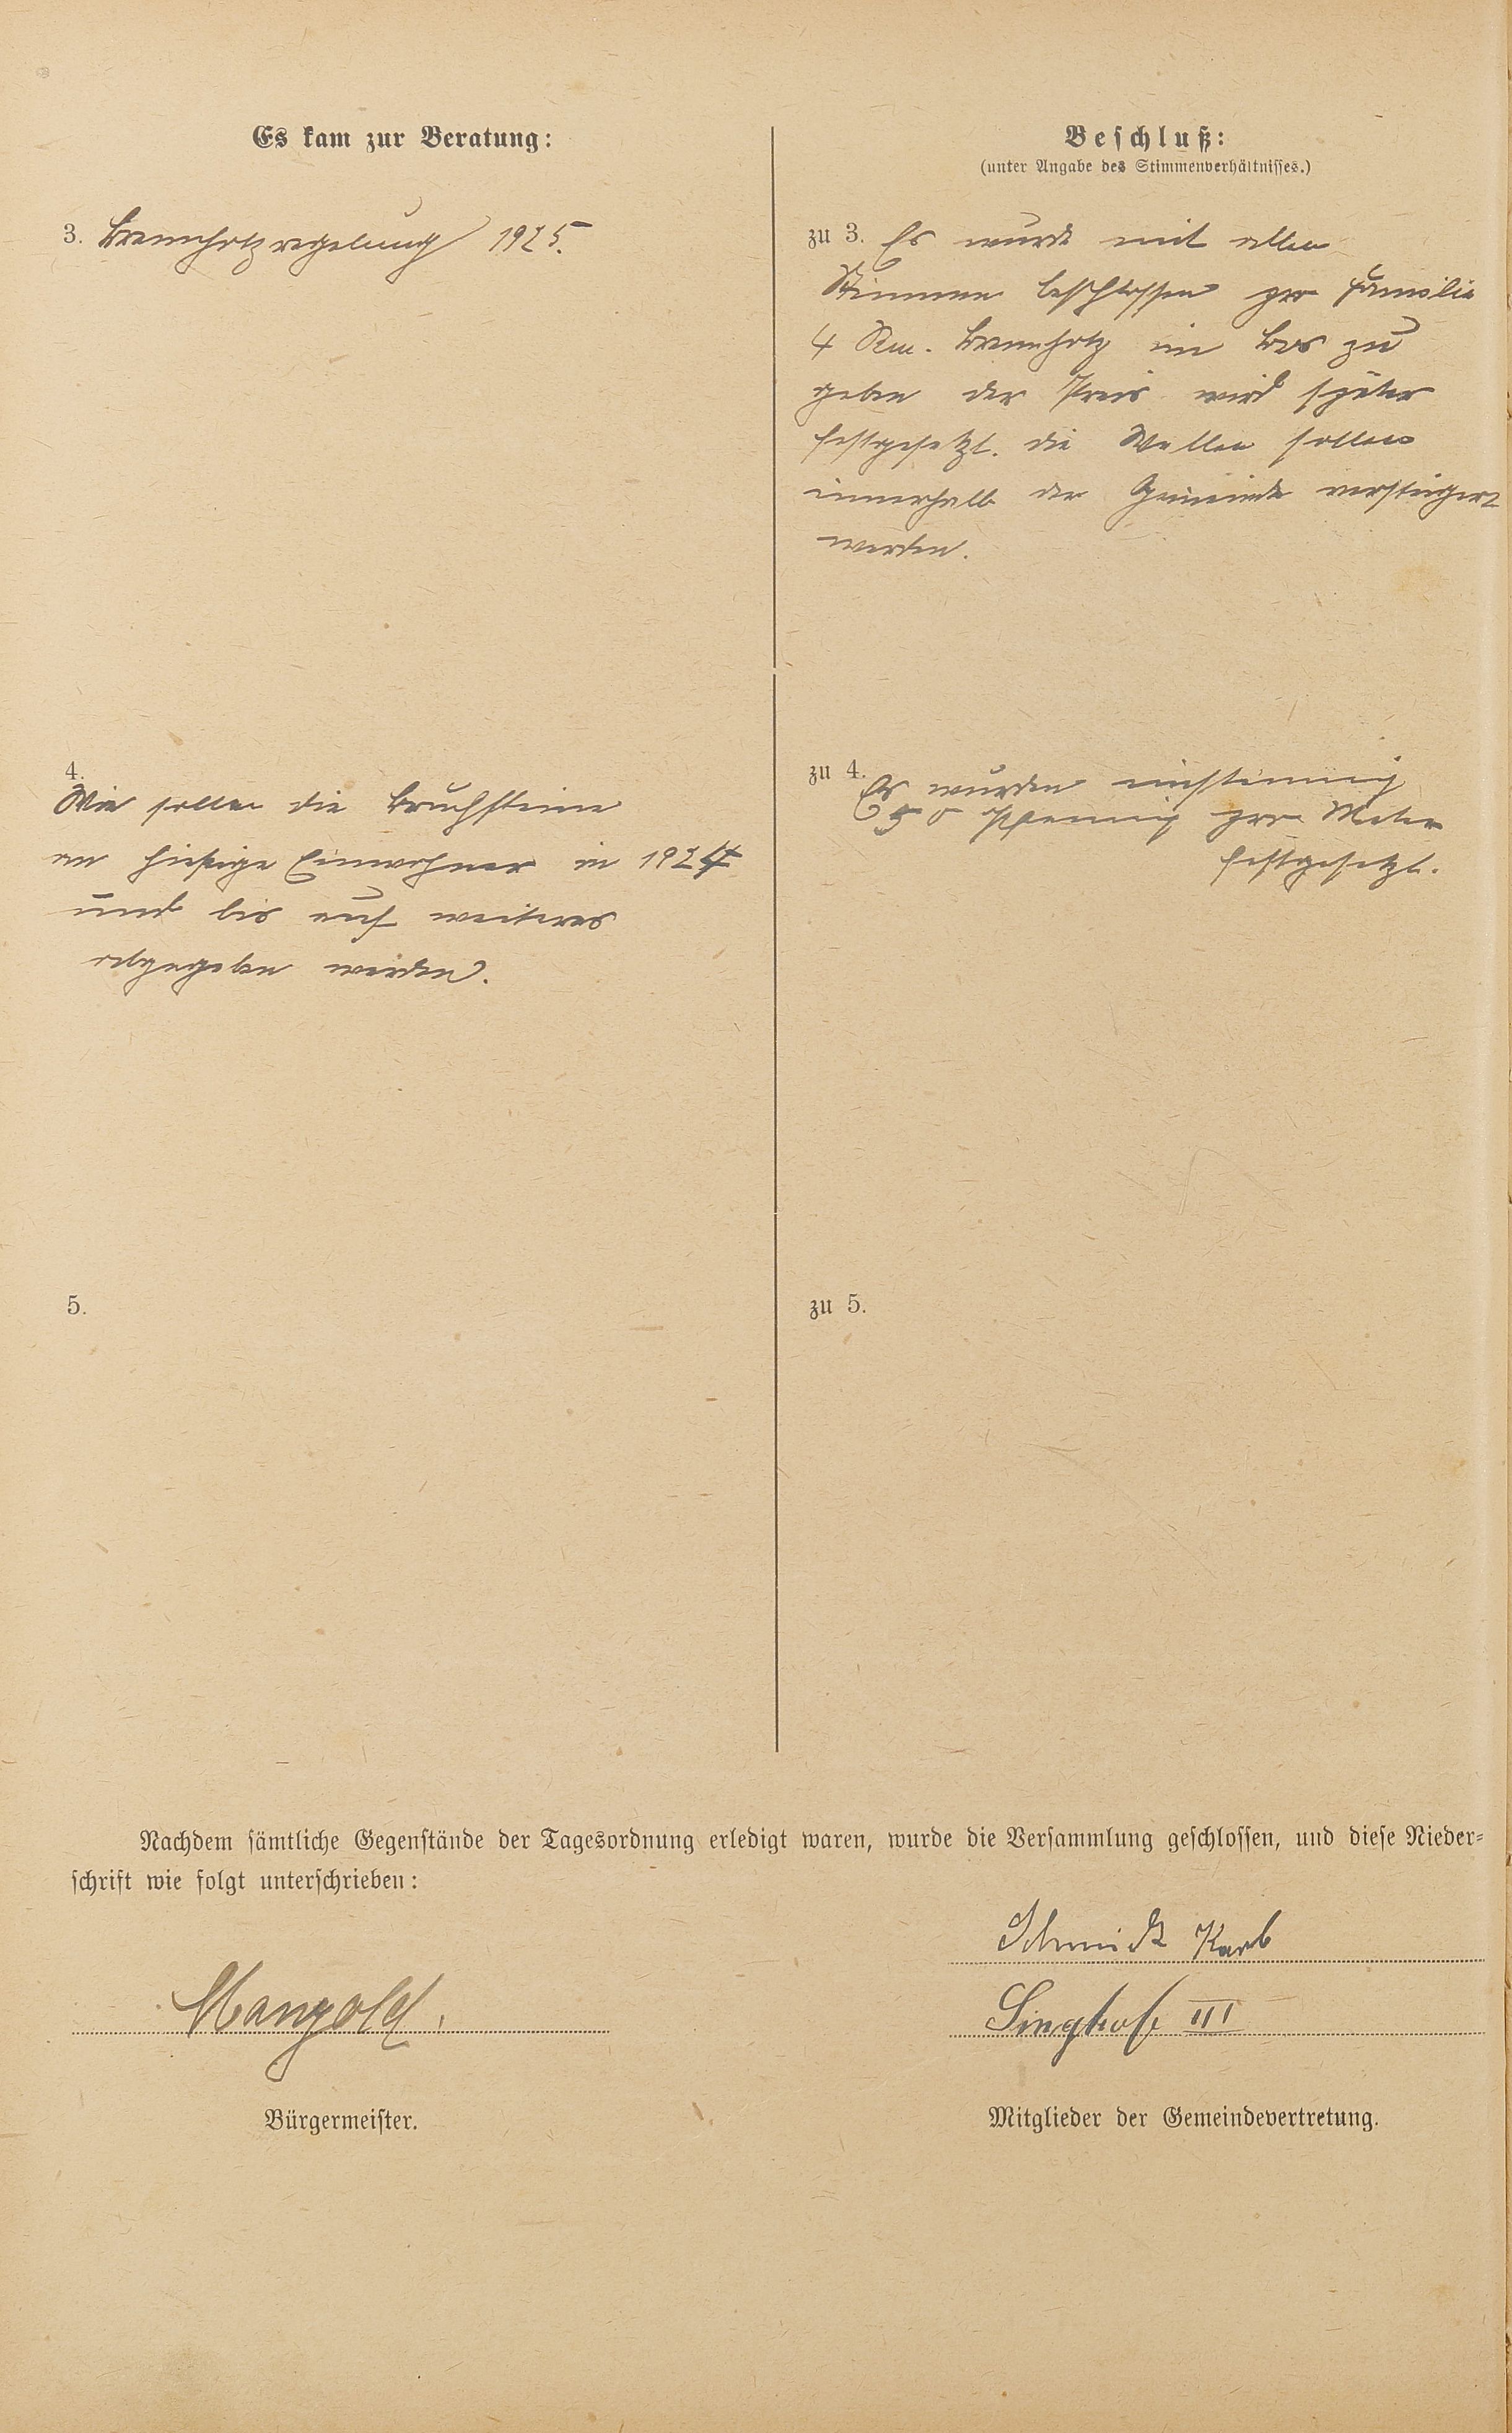 Es kam zur Beratung:
3. Brennholzregelung 1925.
4.
Wie sollen die Bruchsteine
an hiesige Einwohner in 1924
und bis auf weiteres
abgegeben werden.
5.
Beschluß:
(unter Angabe des Stimmenverhältnisses.)
zu 3. Es wurde mit allen
Stimmen beschlossen pro Familie
4 Rm. Brennholz im Los zu
geben der Preis wird später
festgesetzt. die Wellen sollen
innerhalb der Gemeinde versteigert
werden.
zu 4.
Es wurden einstimmig
50 Pfennig pro Meter
festgesetzt.
zu 5.
Nachdem sämtliche Gegenstände der Tagesordnung erledigt waren, wurde die Versammlung geschlossen, und diese Nieder-
schrift wie folgt unterschrieben:
Mangold.
Bürgermeister.
Schmidt Karl
Singhof III
Mitglieder der Gemeindevertretung.